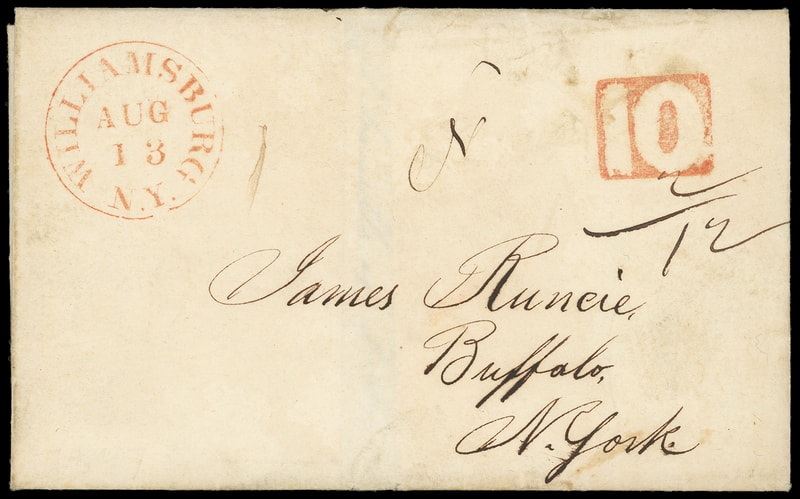 WILLIAMSBURG. N.Y.
AUG
13
10
N
2/12
James Runcie,
Buffalo,
N. York.